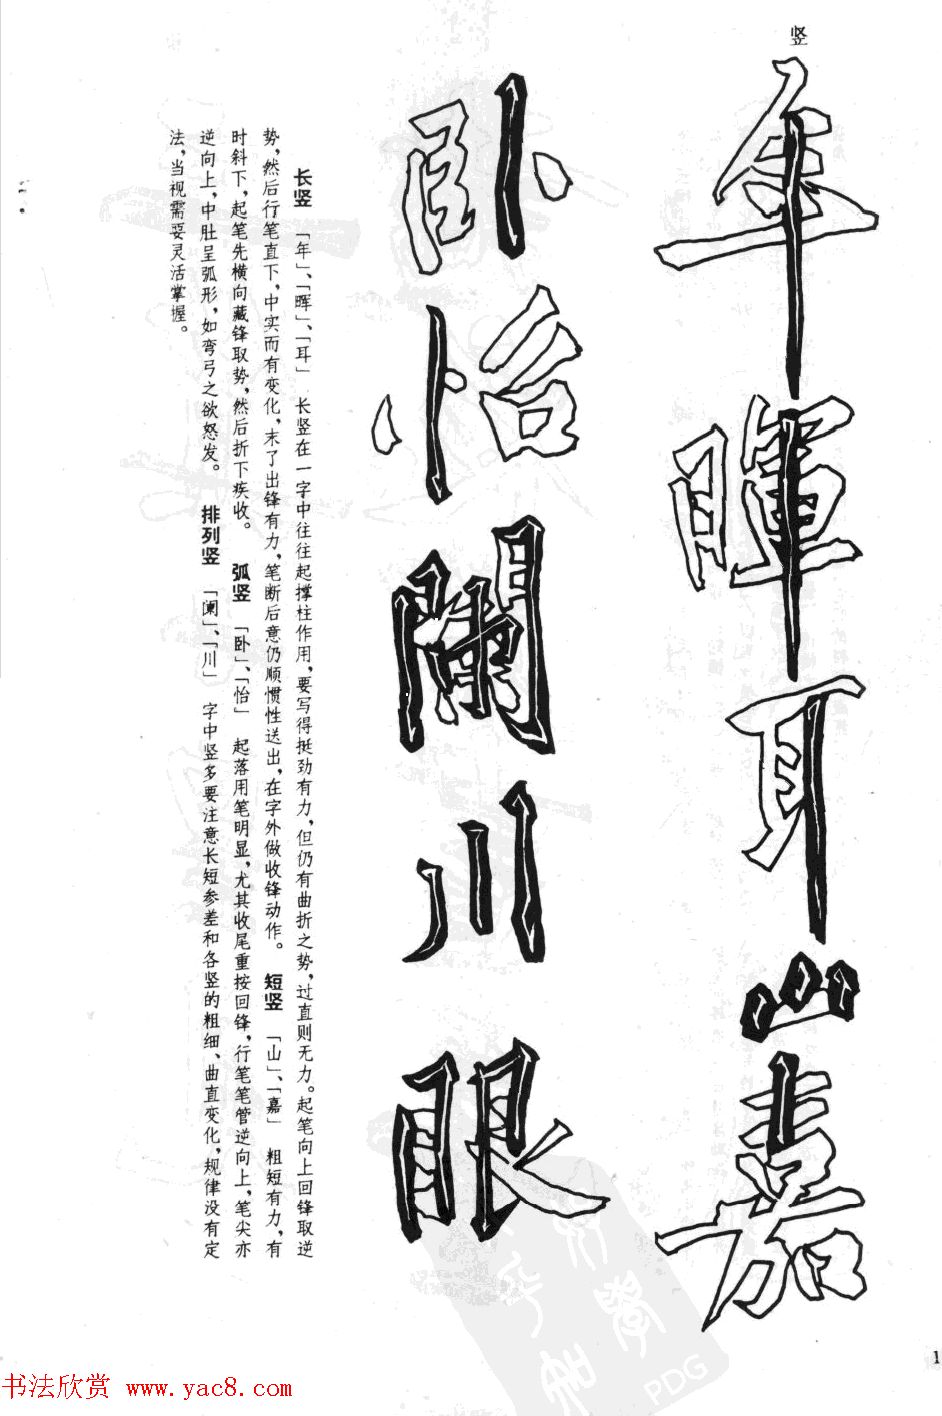 竖
年暉耳山嘉
卧怡闌川眼
长竖 「年」、「晖」、「耳」 长竖在一字中往往起撑柱作用,要写得挺劲有力,但仍有曲折之势,过直则无力。起笔向上回锋取逆
势,然后行笔直下,中实而有变化,末了出锋有力,笔断后意仍顺惯性送出,在字外做收锋动作。 短竖 「山」、「嘉」 粗短有力,有
时斜下,起笔先横向藏锋取势,然后折下疾收。 弧竖 「卧」、「怡」 起落用笔明显,尤其收尾重按回锋,行笔笔管逆向上,笔尖亦
逆向上,中肚呈弧形,如弯弓之欲怒发。 排列竖 「阑」、「川」 字中竖多要注意长短参差和各竖的粗细、曲直变化,规律没有定
法,当视需要灵活掌握。
1
书法欣赏 www.yac8.com
PDG